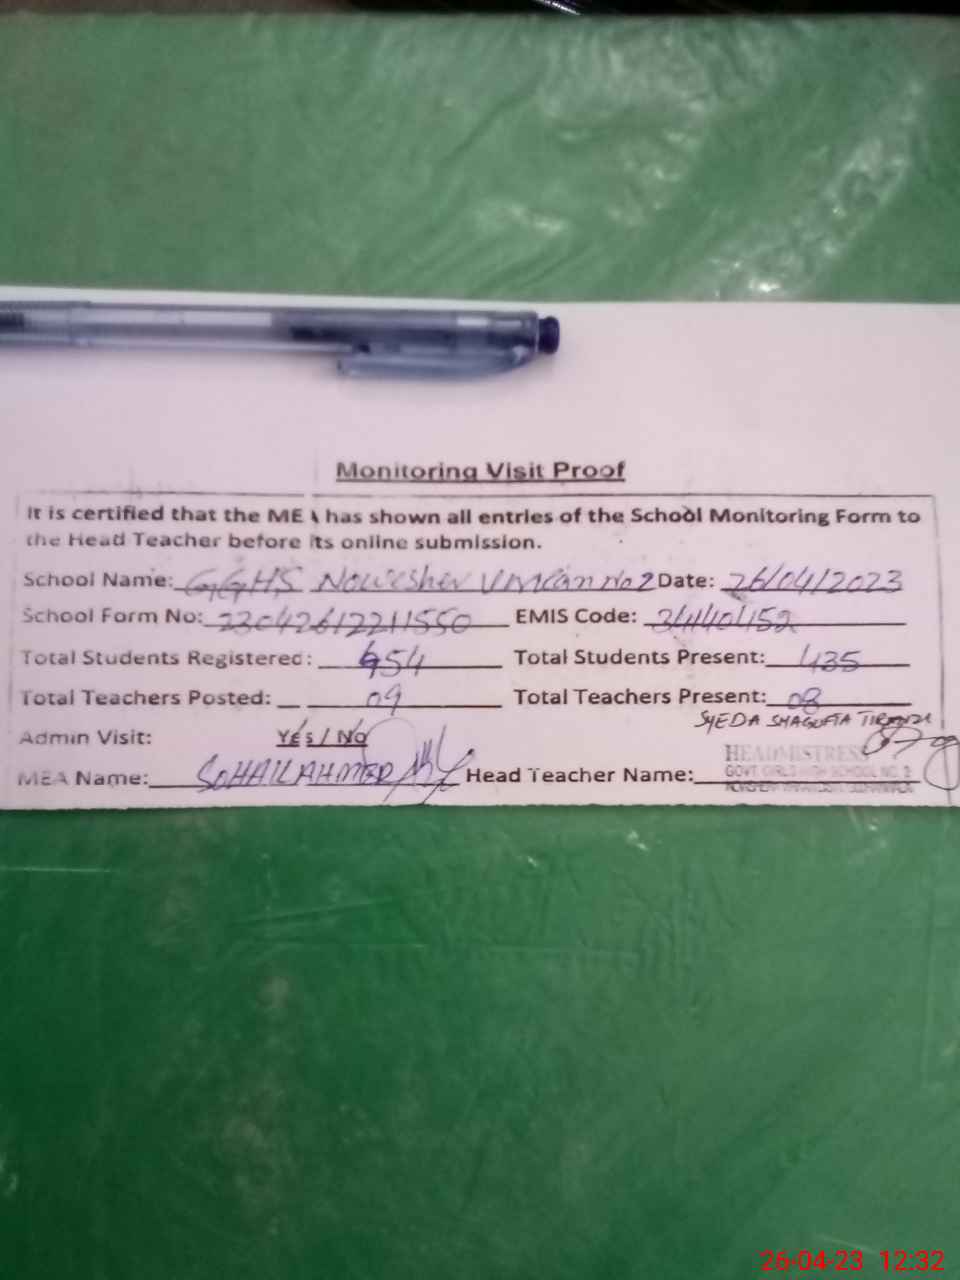 Monitoring Visit Proof
It is certified that the MEA has shown all entries of the School Monitoring Form to
the Head Teacher before its online submission.
School Name: GGHS Nowesher Virkan No 2 Date: 26/04/2023
School Form No: 23042612211550 EMIS Code: 34140452
Total Students Registered: 454 Total Students Present: 435
Total Teachers Posted: 09 Total Teachers Present: 08
SYEDA SHAGUFTA
Admin Visit: Yes / No
HEADMISTRESS
MEA Name: SOHAIL AHMED Head Teacher Name:
GOVT. GIRLS HIGH SCHOOL NO. 2
26-04-23 12:32